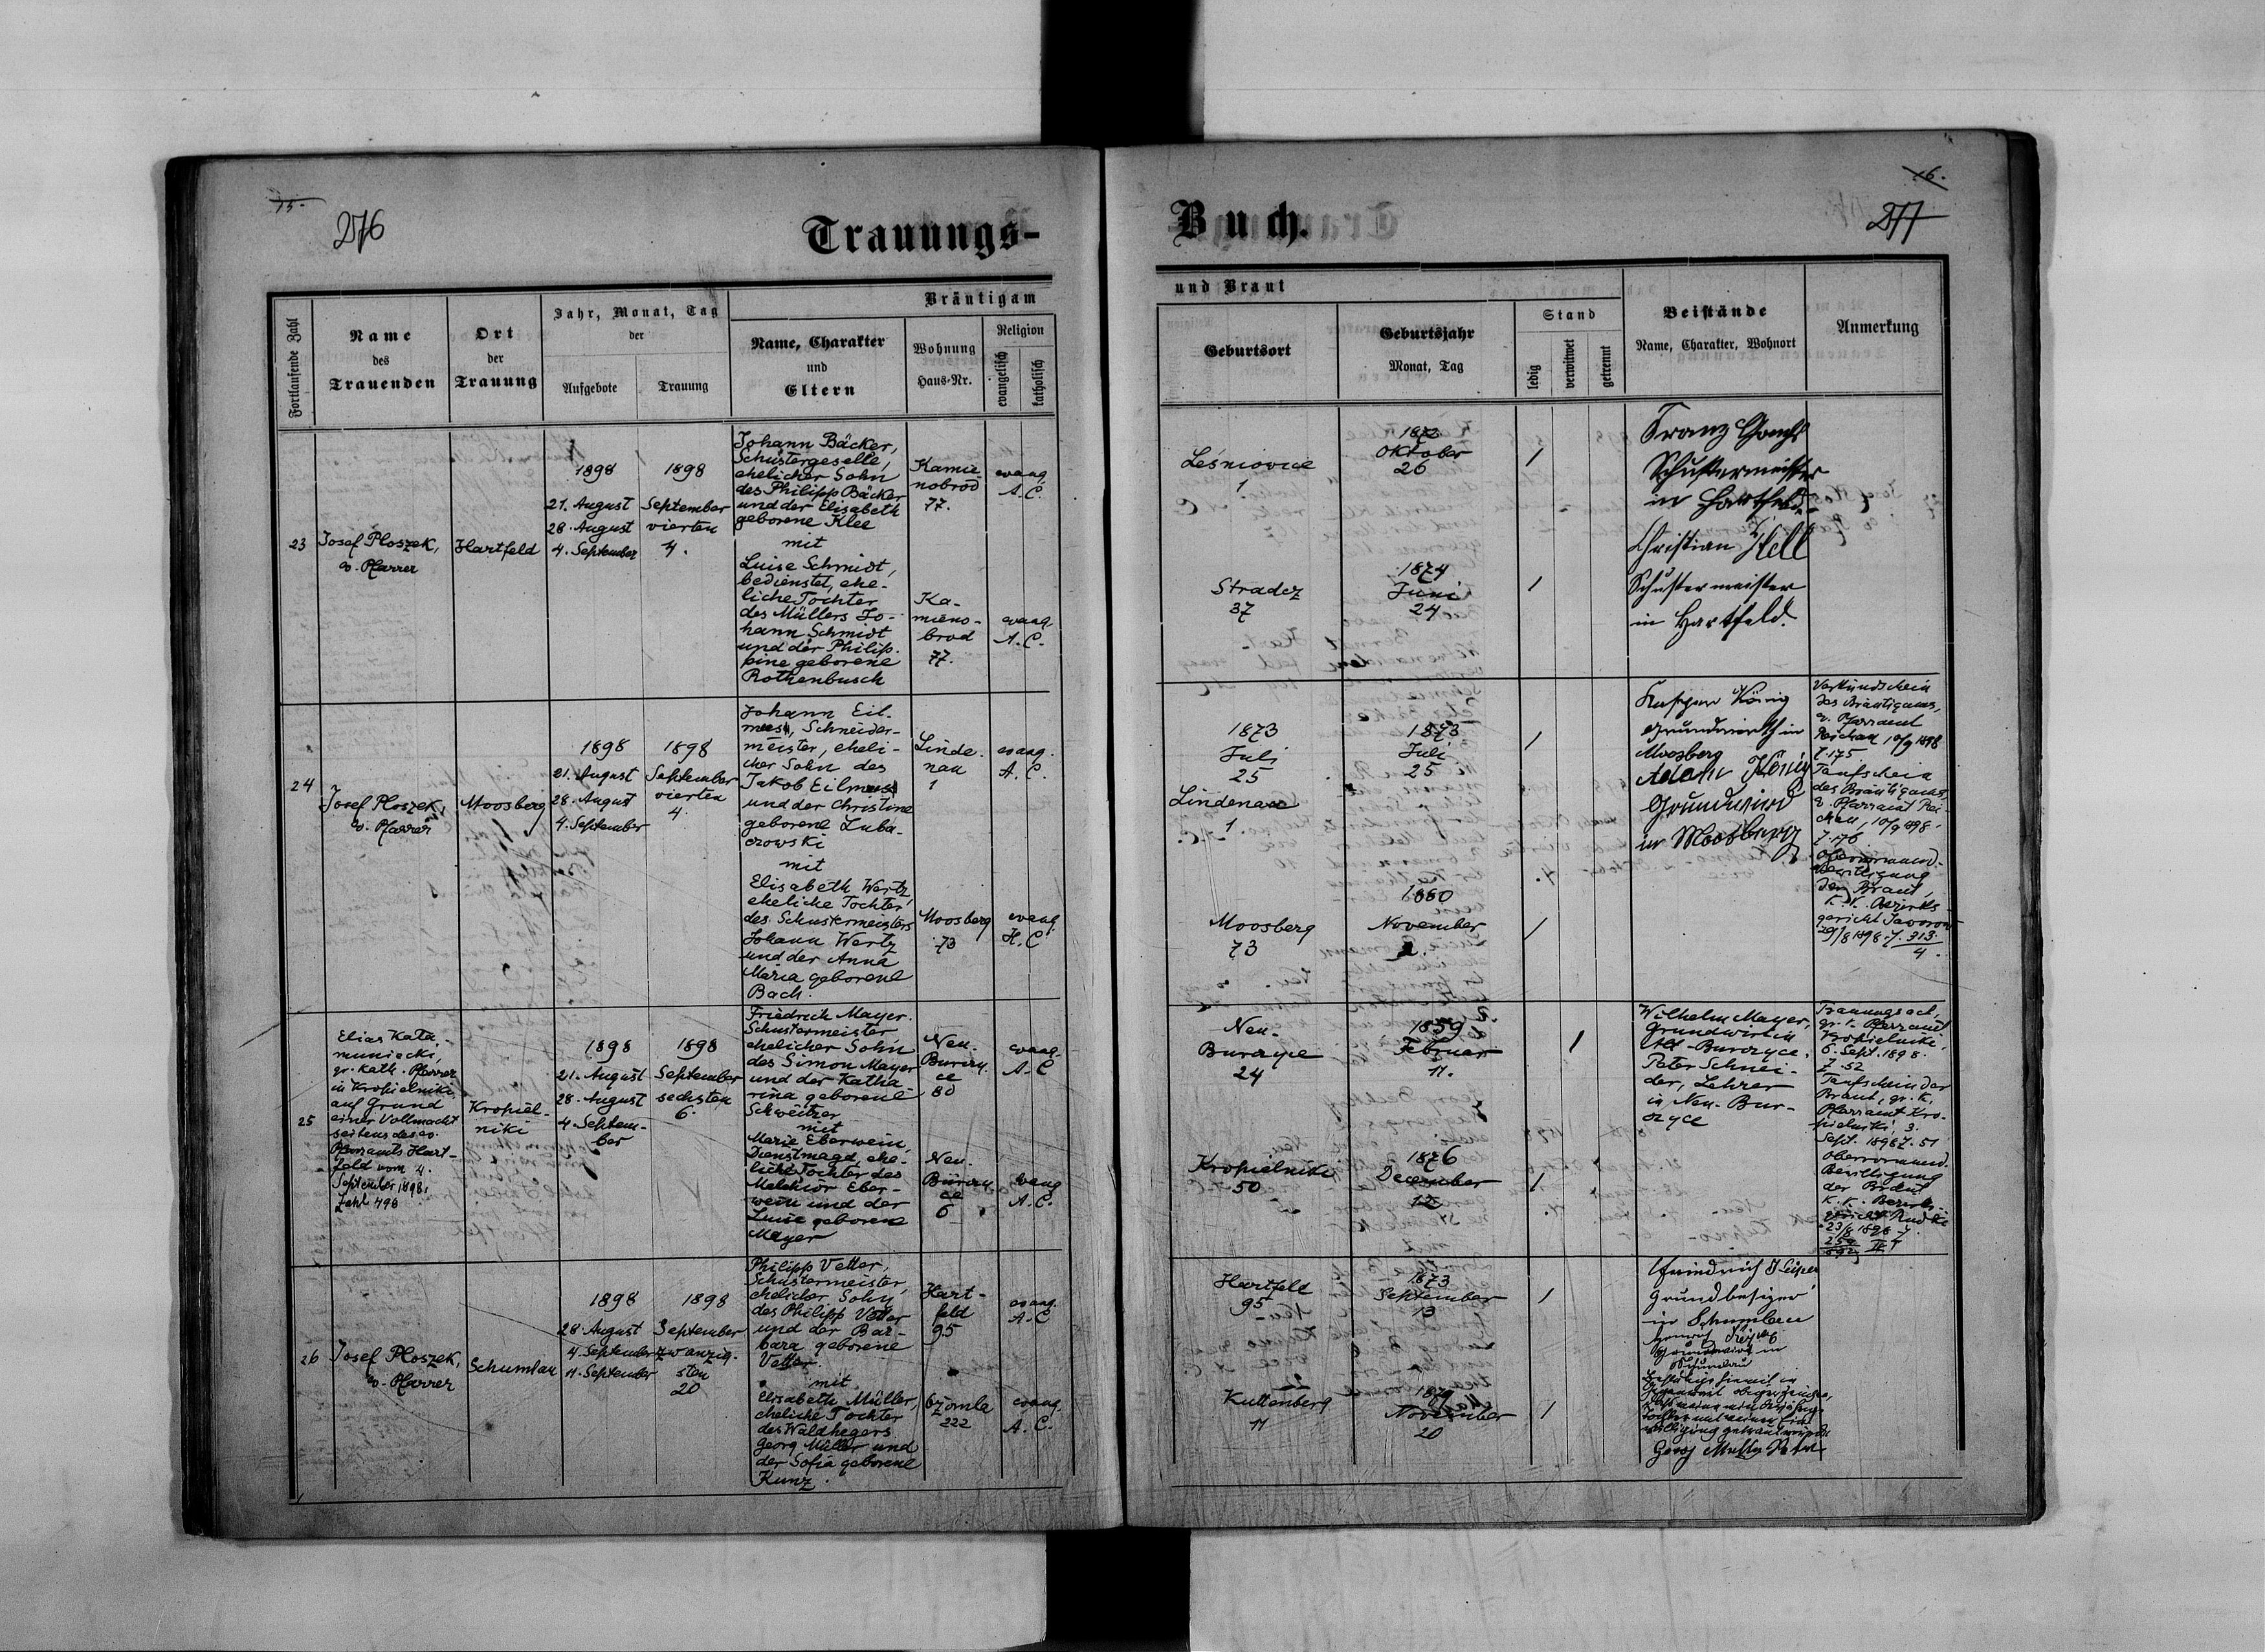 15.
276
Trauungs-
Fortlaufende Zahl
Name
des
Trauenden
Ort
der
Trauung
Jahr, Monat, Tag
der
Aufgebote
Trauung
Bräutigam
Name, Charakter
und
Eltern
Wohnung
Haus-Nr.
Religion
evangelisch
katholisch
23
Josef Ploszek,
ev. Pfarrer
Hartfeld
1898
21. August
28. August
4. September
1898
September
vierten
4.
Johann Bäcker,
Schustergeselle,
ehelicher Sohn
des Philipp Bäcker
und der Elisabeth
geborene Klee
mit
Luise Schmidt,
bedienstet, ehe-
liche Tochter
des Müllers Jo-
hann Schmidt
und der Philip-
pine geborene
Rothenbusch
Kamie
nobrod
77.
evang.
A. C.
Ka-
mieno-
brod
77.
evang.
A. C.
24
Josef Ploszek,
ev. Pfarrer
Moosberg
1898
21. August
28. August
4. September
1898
September
vierten
4.
Johann Eil-
mess, Schneider-
meister, eheli-
cher Sohn des
Jakob Eilmess
und der Christine
geborene Luba-
czowski
mit
Elisabeth Wertz,
eheliche Tochter
des Schustermeisters
Johann Wertz
und der Anna
Maria geborene
Bach.
Linde-
nau
1
evang.
A. C.
Moosberg
73
evang.
H. C.
25
Elias Kata
muniacki,
gr. kath. Pfarrer
in Kropielniki,
auf Grund
einer Vollmacht
seitens des ev.
Pfarramts Hart-
feld vom 4.
September 1898,
Zahl 498
Kropiel-
niki
1898
21. August
28. August
4. Septem-
ber
1898
September
sechsten
6.
Friedrich Mayer.
Schustermeister
ehelicher Sohn
des Simon Mayer
und der Katha-
rina geborene
Schweitzer
mit
Marie Eberwein,
Dienstmagd, ehe-
liche Tochter des
Melchior Eber-
wein und der
Luise geborene
Mayer
Neu-
Burczy-
ce
80
evang.
A. C.
Neu-
Burczy
ce
6
evang.
A. C.
26
Josef Ploszek,
ev. Pfarrer
Schumlau
1898
28. August
4. September
11. September
1898
September
zwanzig-
sten
20
Philipp Vetter,
Schustermeister,
ehelicher Sohn
des Philipp Vetter
und der Bar-
bara geborene
Vetter.
mit
Elisabeth Müller,
eheliche Tochter
des Waldhegers
Georg Müller und
der Sofia geborene
Kunz.
Hart-
feld
95
evang.
A. C.
Ożomla
222
evang.
A. C.
16.
277
Buch.
und Braut
Geburtsort
Geburtsjahr
Monat, Tag
Stand
ledig
verwitwet
getrennt
Beistände
Name, Charakter, Wohnort
Anmerkung
Leśniovice
1.
Oktober
26
Franz
Schustermeister
in Hartfeld.
Christian Hell
Schustermeister
in Hartfeld.
Stradcz
37
1874
Juni
24
1873
Juli
25
Lindenau
1.
1873
Juli
25
Kaspar König
Grundwirth in
Moosberg
Adam König
Grundwird
in Moosberg
Verkündschein
des Bräutigams,
ev. Pfarramt
Reichau 10/9 1898
Z. 175
Taufschein
des Bräutigams
ev. Pfarramt Rei-
chau, 10/9 898.
Z. 176
Obervormund-
bewilligung
der Braut,
k. k. Bezirks-
gericht Jaworow
29/8 1898. Z. 313.
4.
Moosberg
73
1880
November
Neu-
Burczyce
24
1859
Februar
11.
Wilhelm Mayer,
Grundwirt in
Alt-Burczyce.
Peter Schnei-
der, Lehrer
in Neu-Bur-
czyce
Trauungsact,
gr. k. Pfarramt
Kropielniki,
6. Sept. 1898.
Z. 52
Taufschein der
Braut, gr. k.
Pfarramt Kro-
pielniki 3.
Sept. 1898 Z. 51
Obervormund.
Bewilligung
der Braut
k. k. Bezirks-
gericht Rudki
23/8 1898 Z.
Kropielniki
50
1876
December
12
Hartfeld
95
1873
September
13
Friedrich
Grundbesizer
in Schumlau
Grundwirt in
Schumlau
Kuttenberg
11
1879
November
20
Georg Müller Vater